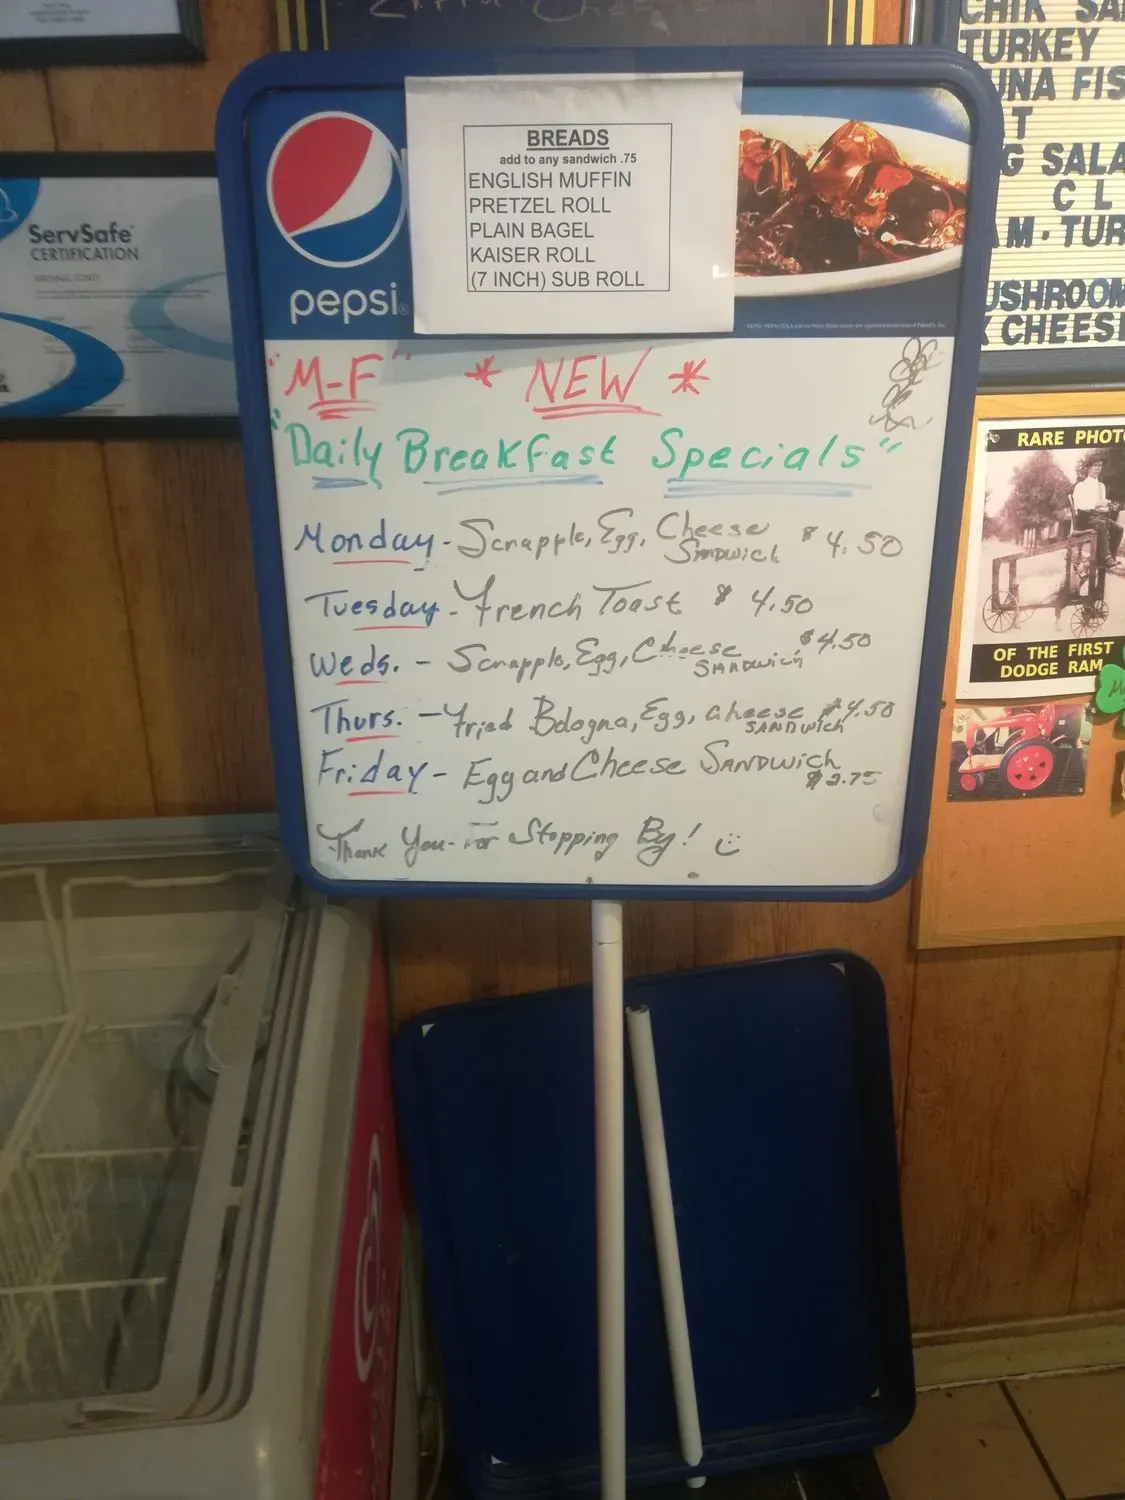 ServSafe
CERTIFICATION
pepsi
BREADS
add to any sandwich .75
ENGLISH MUFFIN
PRETZEL ROLL
PLAIN BAGEL
KAISER ROLL
(7 INCH) SUB ROLL
"M-F" * NEW *
"Daily Breakfast Specials"
Monday - Scrapple, Egg, Cheese SANDWICH $4.50
Tuesday - French Toast $4.50
Weds. - Scrapple, Egg, Cheese SANDWICH $4.50
Thurs. - Fried Bologna, Egg, cheese SANDWICH $4.50
Friday - Egg and Cheese SANDWICH $2.75
Thank You - For Stopping By!
CHIK SA
TURKEY
UNA FIS
T
G SALA
C L
AM · TUR
USHROOM
K CHEES
RARE PHOTO
OF THE FIRST
DODGE RAM